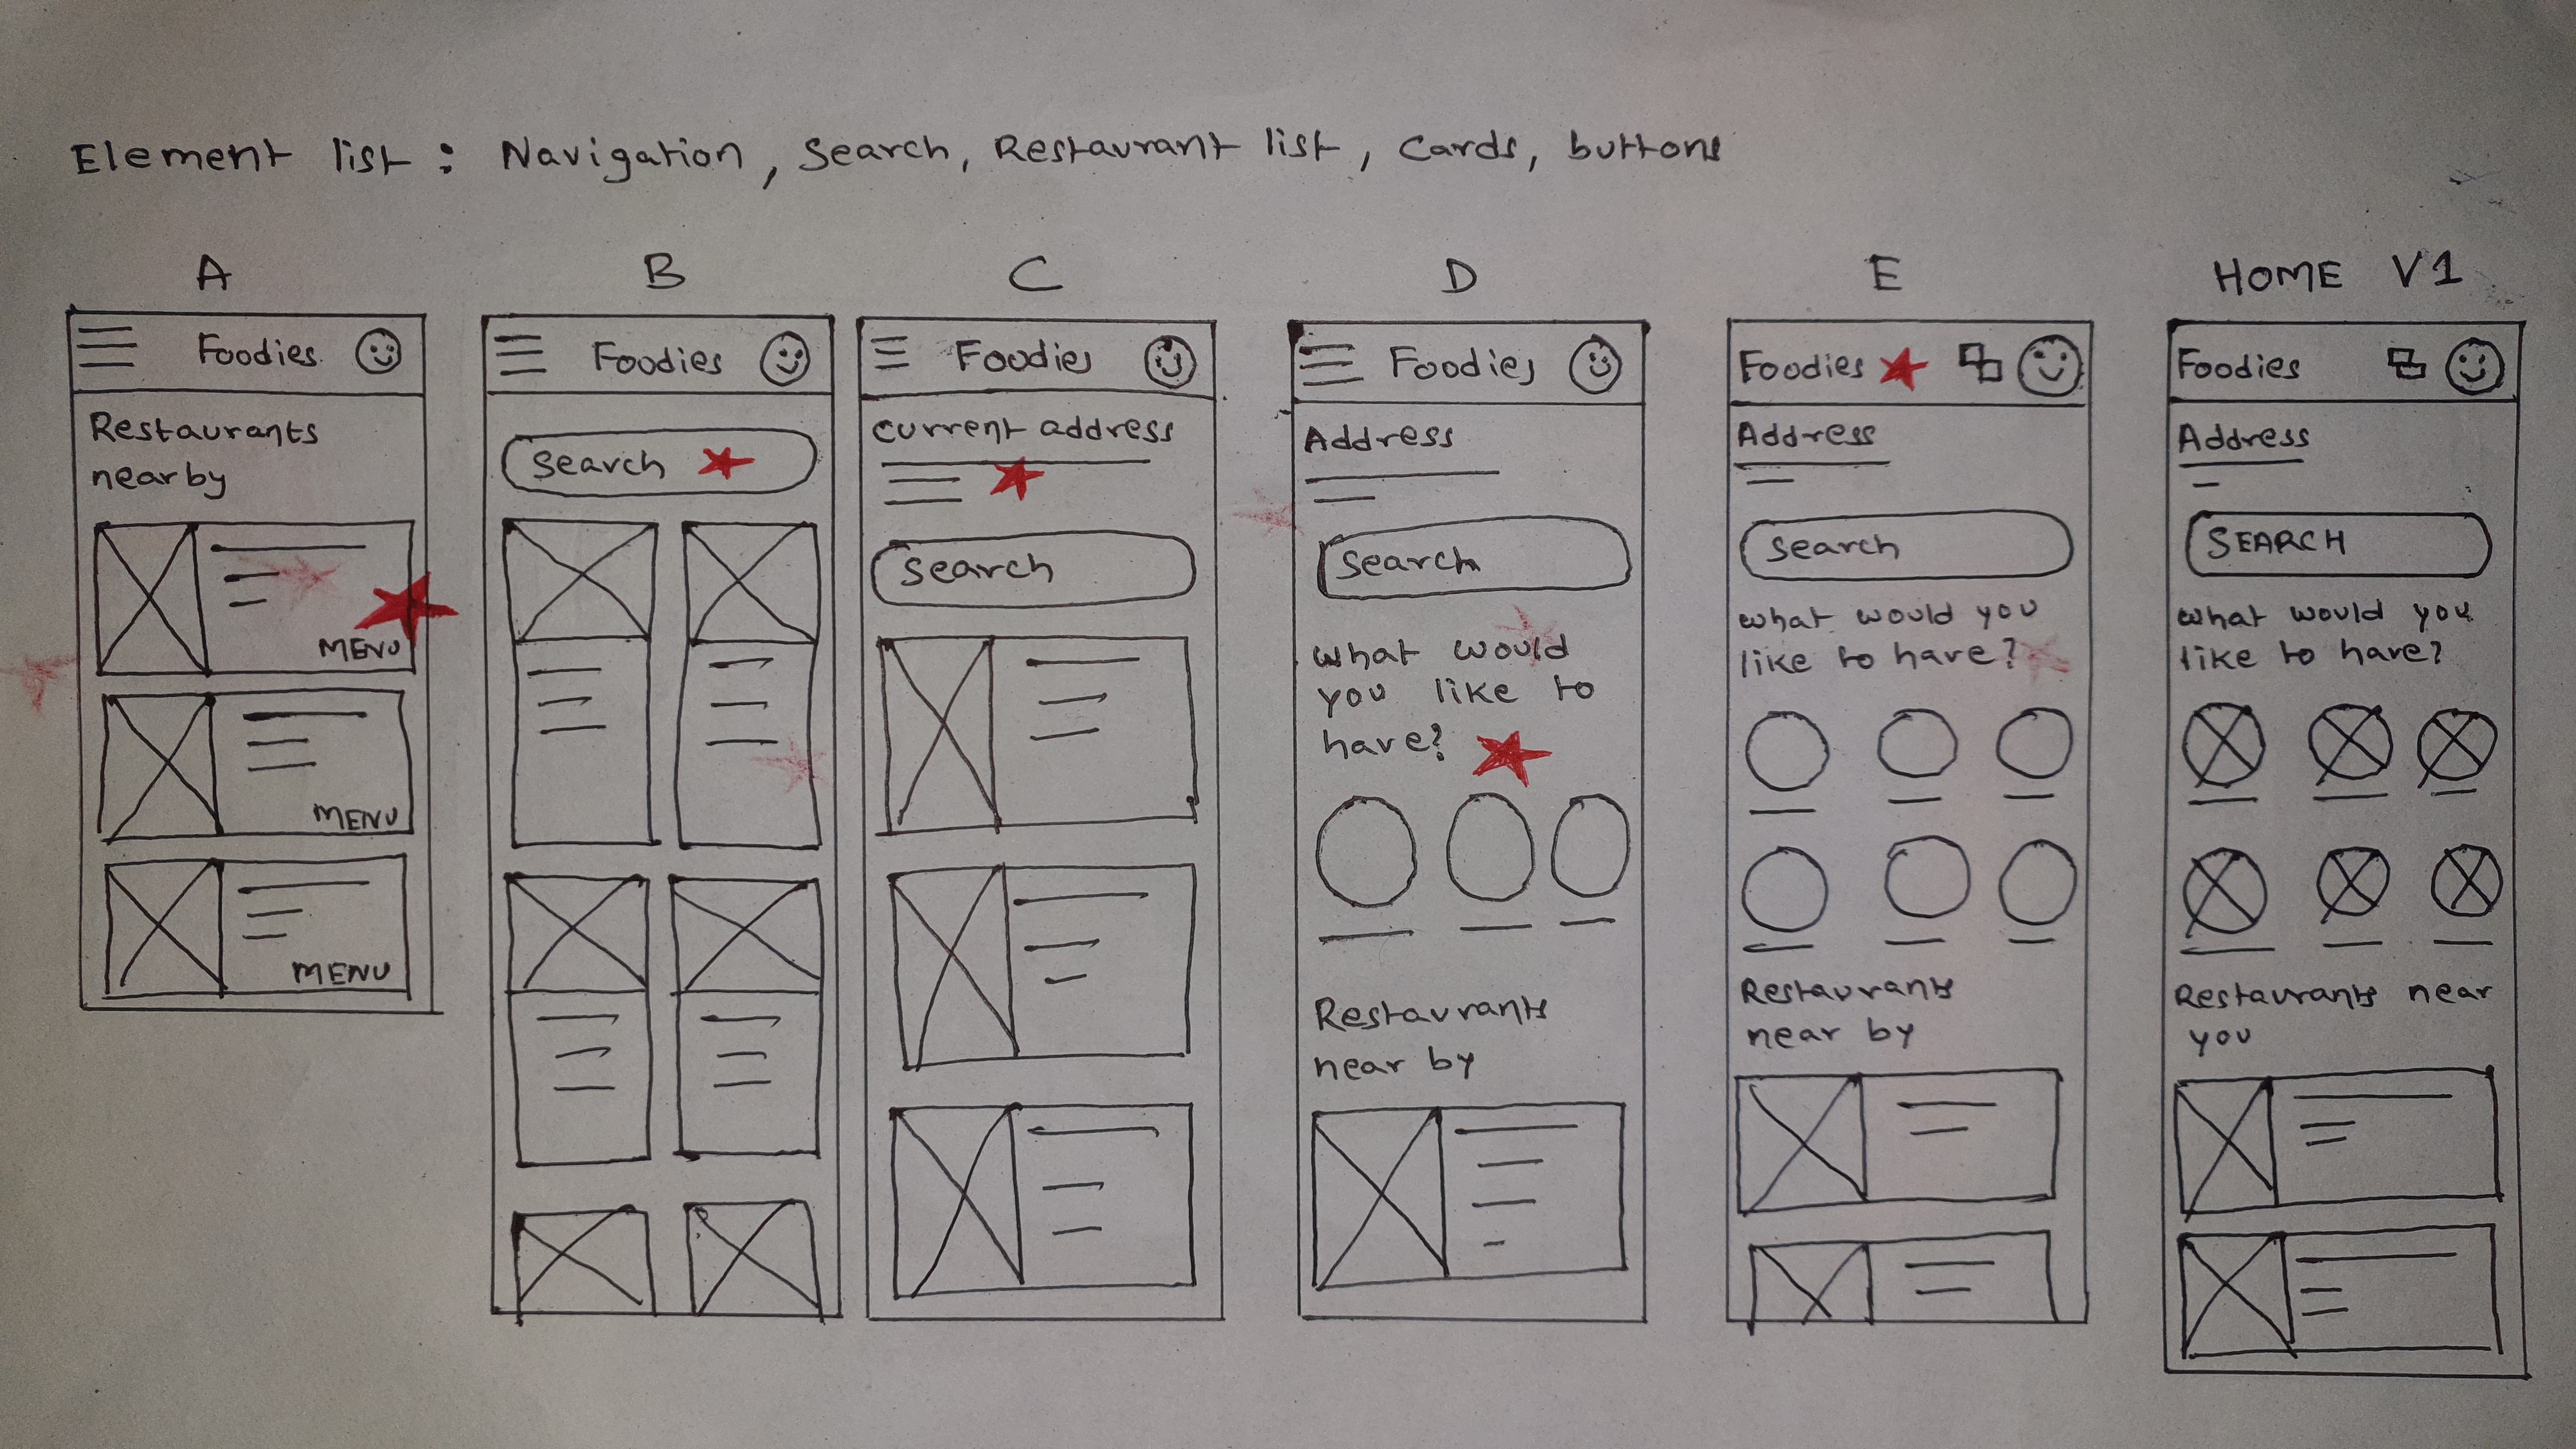 Element list : Navigation, Search, Restaurant list, Cards, buttons
A
Foodies
Restaurants
nearby
MENU
MENU
MENU
B
Foodies
Search
C
Foodies
current address
Search
D
Foodies
Address
Search
What would
you like to
have?
Restaurants
near by
E
Foodies
Address
Search
what would you
like to have?
Restaurants
near by
HOME V1
Foodies
Address
SEARCH
what would you
like to have?
Restaurants near
you